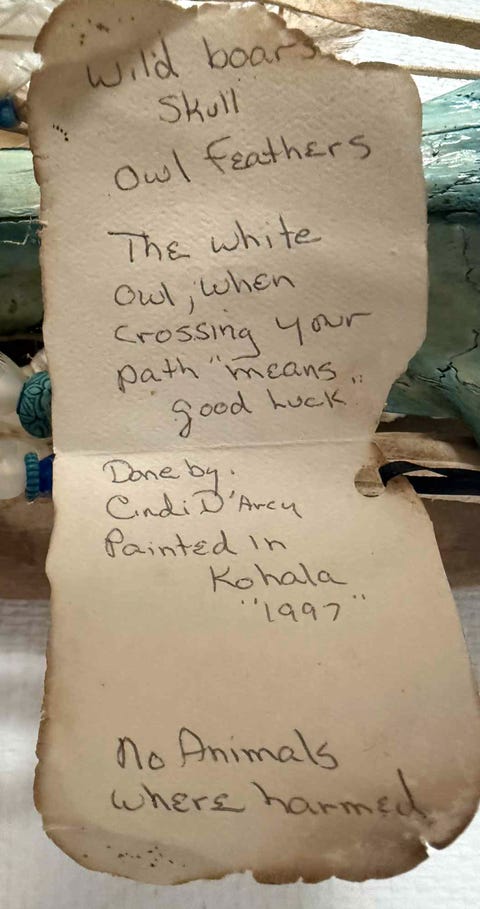 Wild boars
Skull
Owl Feathers
The white
Owl, when
crossing your
path "means
good Luck"
Done by.
Cindi D'Arcy
Painted In
Kohala
"1997"
No Animals
where harmed